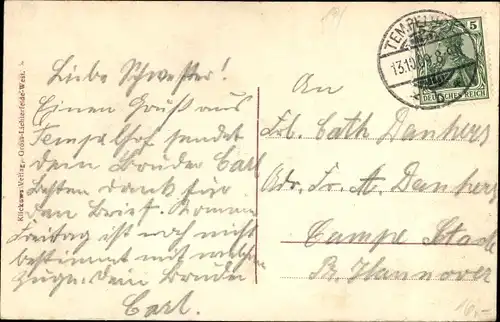 Liebe Schwester!
Einen Gruß aus
Tempelhof sendet
dein Bruder Carl
Besten dank für
den Brief. Komme
Freitag ist noch nicht
bestimmt mit welchem
Zuge. Dein Bruder
Carl.
Klickows Verlag, Gross-Lichterfelde-West.
An
Frl. Cath Dankers
Adr. Fr. A. Dankers
Campe Stade
Pr. Hannover
TEMPELHOF
13.10.09. 8-9
5
DEUTSCHES REICH